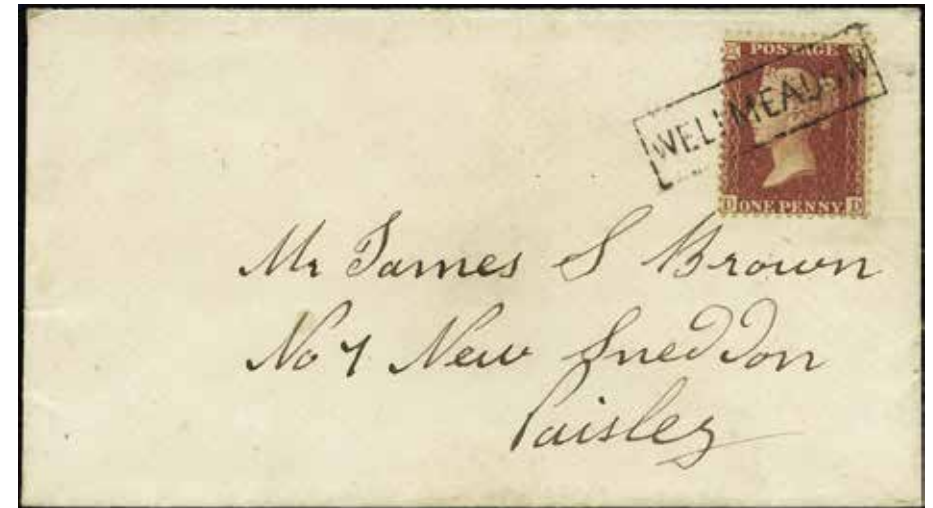 POSTAGE
WELLMEADOW
ONE PENNY
Mr James S Brown
No 7 New Sneddon
Paisley